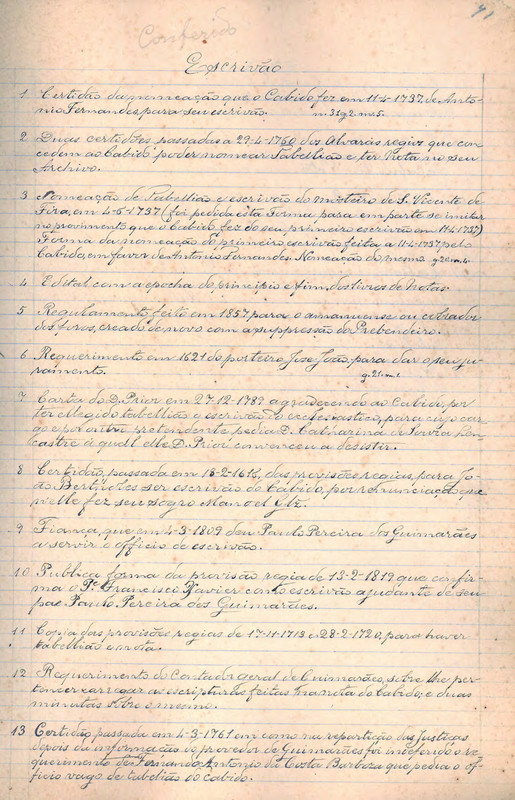 Conferido
Escrivão
1 Certidão da nomeação que o Cabido fez em 11-4-1737, de Anto-
nio Fernandes, para seu escrivão. n. 35 g 2 m. 5.
2 Duas certidões passadas a 29-4-1760 dos Alvarás regios que con-
cedem ao Cabido poder nomear Tabellião e ter Nota no seu
Archivo.
3 Nomeação de Tabellião e escrivão do mosteiro de S. Vicente de
Fóra, em 4-5-1737 (foi pedida esta Forma para em parte se imitar
no provimento que o Cabido fez do seu primeiro escrivão em 11-4-1737)
Forma da nomeação do primeiro escrivão feita a 11-4-1737 pelo
Cabido, em favor de Antonio Fernandes. Nomeação do mesmo
4 Edital com a epocha do principio e fim, dos livros de Notas.
5 Regulamento feito em 1857 para o amanuense ou cobrador
dos foros, creado de novo com a suppressão do Prebendeiro.
6 Requerimento em 1621 do porteiro, José João, para dar o seu ju-
ramento.
7 Carta do D. Prior em 27-12-1789 agradecendo ao Cabido, por
ter ellegido tabellião a escrivão do ecclesiastico, para cujo car-
go e por outro pretendente pedia D. Catharina de Souza Len-
castre á qual elle D. Prior convenceu a desistir.
8 Certidão, passada em das provisões regias, para Jo-
ão ser escrivão do Cabido, por renunciação que
n'elle fez seu sogro Manoel Glz.
9 Fiança, que em 4-3-1809 deu Paulo Pereira dos Guimarães
a servir o officio de escrivão.
10 Publica forma da provisão regia de 13-2-1819 que confir-
ma o Pe. Francisco Xavier como escrivão ajudante de seu
pae Paulo Pereira dos Guimarães.
11 Copia das provisões regias de 17-11-1713 e 28-2-1720, para haver
tabellião e nota.
12 Requerimento do Contador geral de Guimarães, sobre lhe per-
tencer carregar as escripturas feitas na nota do Cabido, e duas
minutas sobre o mesmo.
13 Certidão passada em 4-3-1761 em como na repartição das Justiças
depois da informação do provedor de Guimarães foi indeferido o re-
querimento de Fernando Antonio da Costa Barboza que pedia o of-
ficio vago de tabelião do cabido.